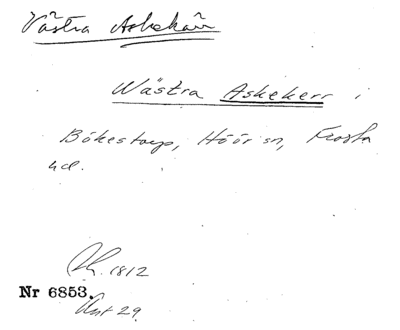 Västra Askekärr
Wästra Askekerr i
Bökestorp, Höör sn, Frosta
hd.
Ch. 1812
Nr 6853.
Akt 29